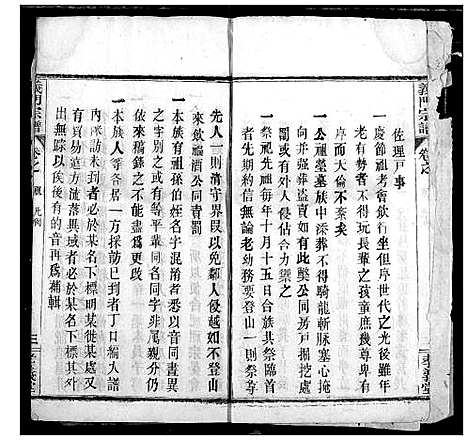 義門宗譜
卷之
佐理戸事
一慶節祖考會飲行坐但序世代之光後年歲之
老右勢者不得玩長輩之孩童庶幾尊卑有
序而大倫不紊矣
一公祖塋墓族中添葬不得騎龍斬脉塞心掩
向并盜葬盜賣如有此獘公同房戸掘挖禀
罰或有外人侵佔合力禦之
一祭祀先祖每年十月十五日合族共祭臨首
者先期約信無論老幼務要登山一則祭享
先人一則清守界限以免鄰人侵害如不登山
來飲福酒公同責罰
一本族有祖孫叔姪名字混淆者悉以音同畫異
之字別之或有等平輩同名同字非属親分仍
依來稿錄之不得
一本族人等各居一方採訪已到者丁口橱入譜
内未訪未到者必於某名下標明某徙某處又
有貿易遠方流落異域者必於某名下標其外
出無踪以俟後有的音再爲補輯
義門宗譜
卷之 凡例
三
孝義堂